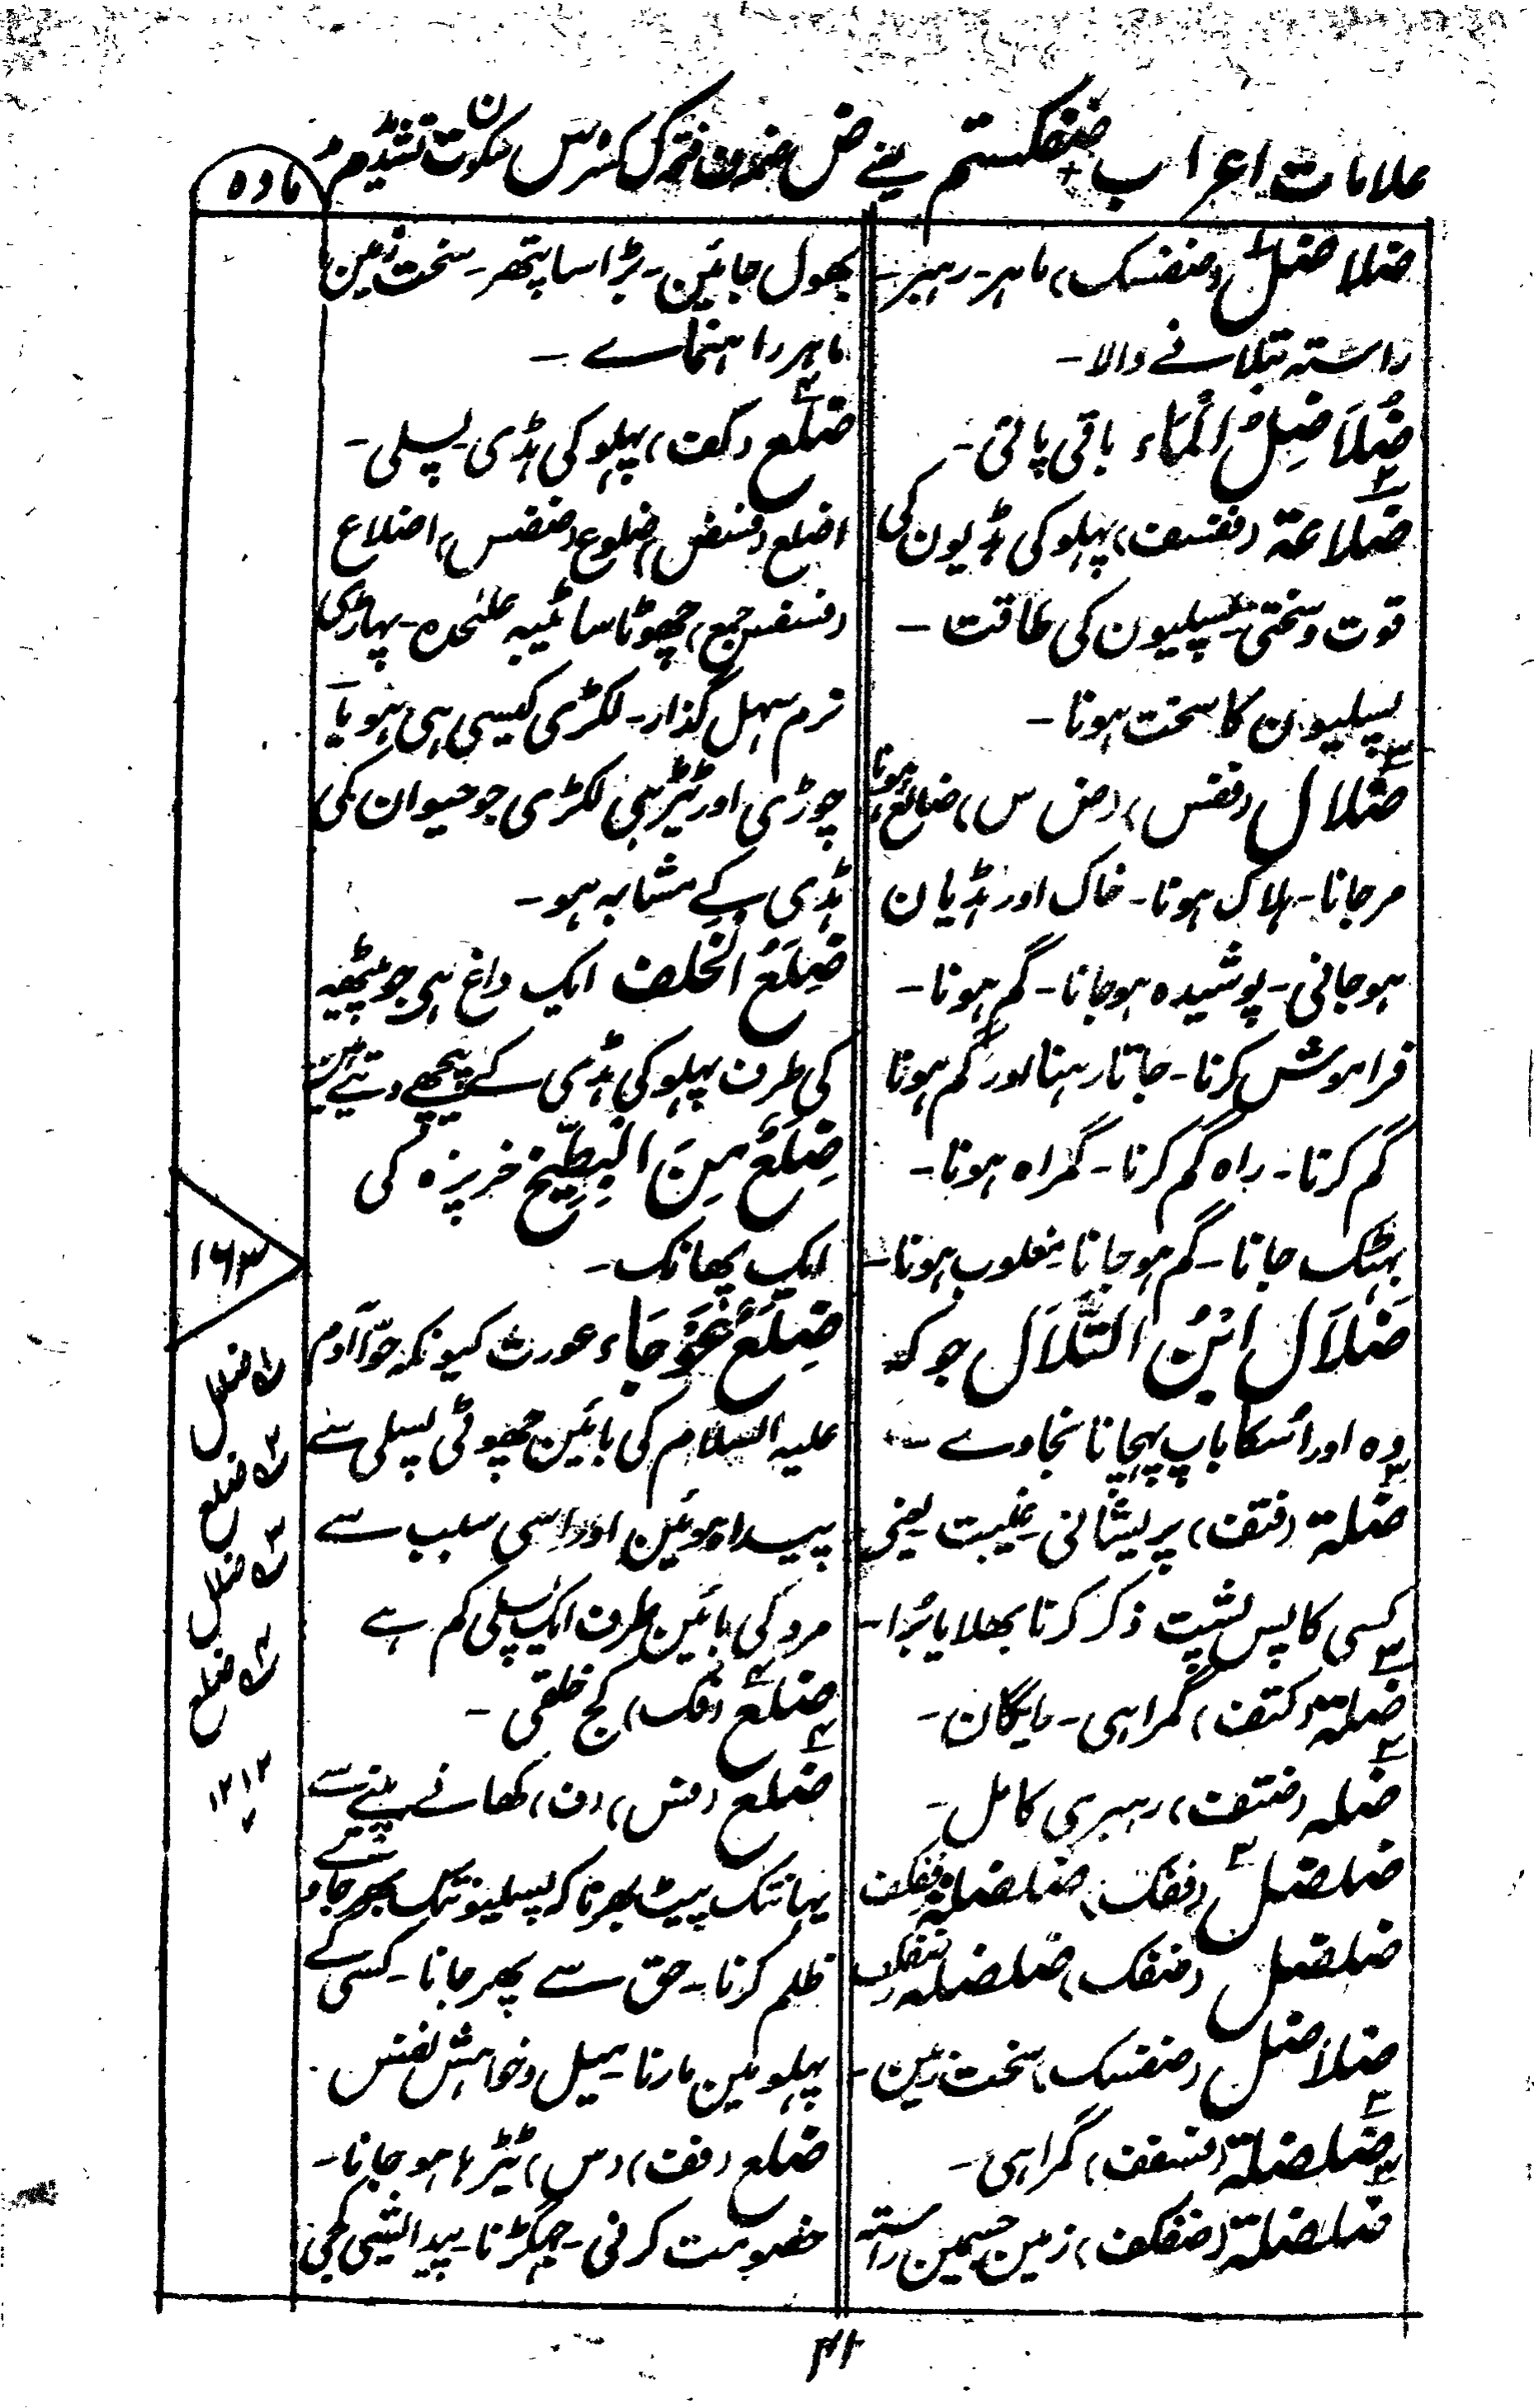 علامات اعراب ضفکستم یعنے ض ضمہ ف فتحہ ک کسرہ س سکون ت تشدید م
مادہ
ضلاضل (ضفسک) ماہر۔ رہبر۔
راستہ بتلانے والا۔
ضُلَاضِلُ الْمَاء باقی پانی۔
ضلاعۃ (ففسف) پہلو کی ہڈیون کی
قوت و سختی۔ پسلیون کی طاقت۔
پسلیون کا سخت ہونا۔
ضلال (ففس) (ض س) ضائع ہونا
مرجانا۔ ہلاک ہونا۔ خاک اور ہڈیان
ہوجانی۔ پوشیدہ ہوجانا۔ گم ہونا۔
فراموش کرنا۔ جاتا رہنا اور گم ہونا
گم کرنا۔ راہ گم کرنا۔ گمراہ ہونا۔
بہٹک جانا۔ گم ہوجانا۔ مغلوب ہونا۔
ضَلَال ابْنُ التَّلَال جو کہ
وہ اور اُسکا باپ پہچانا نجاوے۔
ضلۃ (فتف) پریشانی۔ غیبت یعنی
کسی کا پس پشت ذکر کرنا بھلا یا بُرا۔
ضلۃ (کتف) گمراہی۔ رایگان۔
ضلہ (ضتف) رہبری کامل۔
ضلضل (ففک) ضلضلۃ (ففکف
ضلضل (ضفک) ضلضلہ (ضفکف
ضلاضل (ضفسک) سخت زمین۔
ضلضلۃ (فسفف) گمراہی۔
ضلضلۃ (ضفکف) زمین جسمین راستہ
بھول جائین۔ بڑا سا پتھر۔ سخت زمین
ماہر راہنماے۔
ضلع (کف) پہلو کی ہڈی۔ پسلی۔
اضلع (فسض) ضلوع (ضضس) اضلاع
(فسفس جمع) چھوٹا سا ٹیبہ علٰحدہ۔ پہاڑی
نرم سہل گذار۔ لکڑی کیسی ہی ہو یا
چوڑی اور ٹیڑہی لکڑی جو حیوان کی
ہڈی کے مشابہ ہو۔
ضِلَعُ الخلف ایک داغ ہی جو پیٹھہ
کی طرف پہلو کی ہڈی کے پیچھے دیتے ہین
ضِلَعٌ مِنَ الْبِطِّیْخ خرپزہ کی
ایک پھانک۔
ضِلَعٌ عَوْجَاء عورت کیونکہ حوّا آدم
علیہ السلام کی بائین چھوٹی پسلی سے
پیدا ہوئین اور اسی سبب سے
مرد کی بائین طرف ایک پسلی کم ہے
ضلع (فک) کج خلقی۔
ضلع (فس) (ف) کھانے پینے سے
یہانتک پیٹ بھرنا کہ پسلیونتک بھر جاوے
ظلم کرنا۔ حق سے پھر جانا۔ کسی کے
پہلو مین مارنا۔ میل و خواہش نفس۔
ضلع (فف) (س) ٹیڑہا ہو جانا۔
خصومت کرنی۔ جہگڑنا۔ پیدایشی کجی
۱۶۳
ضلل
ضلع
ضلل
ضلع
۱۲۱۲
۴۱